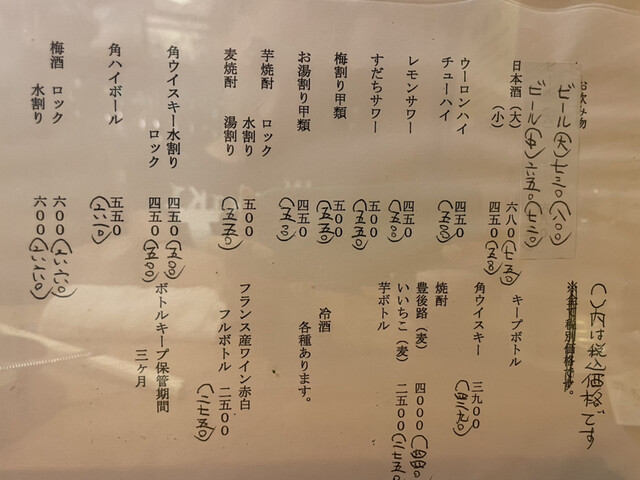 お飲み物
ビール(大)七三〇(八〇〇)
ビール(中)六五〇(七二〇)
日本酒(大) 六八〇(七五〇)
(小) 四五〇(五〇〇)
ウーロンハイ
チューハイ 四五〇(五〇〇)
レモンサワー 四五〇(五〇〇)
すだちサワー 五〇〇(五五〇)
梅割り甲類 五〇〇(五五〇)
お湯割り甲類 四五〇(五〇〇)
芋焼酎 ロック
水割り 五〇〇(五五〇)
麦焼酎 湯割り
角ウイスキー水割り 四五〇(五〇〇)
ロック 四五〇(五〇〇)
角ハイボール 五五〇(六一〇)
梅酒 ロック 六〇〇(六六〇)
水割り 六〇〇(六六〇)
()内は税込価格です
キープボトル
角ウイスキー 三九〇〇(四二九〇)
焼酎
豊後路(麦) 四〇〇〇
いいちこ(麦) 二五〇〇(二七五〇)
芋ボトル
冷酒
各種あります。
フランス産ワイン赤白
フルボトル 二五〇〇(二七五〇)
ボトルキープ保管期間
三ヶ月